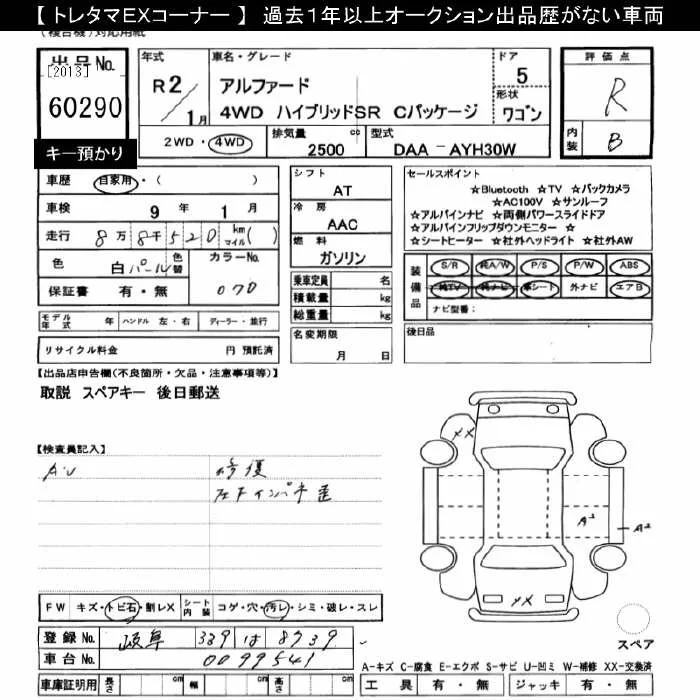 【 トレタマEXコーナー 】 過去1年以上オークション出品歴がない車両
(複合機)対応用紙
出品No. [2013] 60290
キー預かり
年式 R2/1月
車名・グレード アルファード
4WD ハイブリッドSR Cパッケージ
ドア 5
形状 ワゴン
2WD・4WD 排気量 2500 cc 型式 DAA-AYH30W
評価点 R
内装 B
車歴 自家用・( )
車検 9年 1月
走行 8万8千520 km マイル( )
色 白パール 色替 カラーNo. 070
保証書 有・無
モデル年式 年 ハンドル 左・右 ディーラー・並行
リサイクル料金 円 預託済
シフト AT
冷房 AAC
燃料 ガソリン
乗車定員 名
積載量 kg
総重量 kg
名変期限 月 日
セールスポイント
☆Bluetooth ☆TV ☆バックカメラ
☆AC100V ☆サンルーフ
☆アルパインナビ ☆両側パワースライドドア
☆アルパインフリップダウンモニター ☆
☆シートヒーター ☆社外ヘッドライト ☆社外AW
装備品 S/R 純A/W P/S P/W ABS
純TV 純ナビ 革シート 外ナビ エアB
ナビ型番:
後日品
【出品店申告欄(不良箇所・欠品・注意事項等)】
取説 スペアキー 後日郵送
【検査員記入】
A・U 修復
XX
A² A²
XX
FW キズ・トビ石・割レX シート内装 コゲ・穴・汚レ・シミ・破レ・スレ
登録No. 岐阜 339 は 8739
車台No. 0099541
車庫証明用 長さ cm 幅 cm 高さ cm
スペア
A-キズ C-腐食 E-エクボ S-サビ U-凹ミ W-補修 XX-交換済
工具 有・無 ジャッキ 有・無